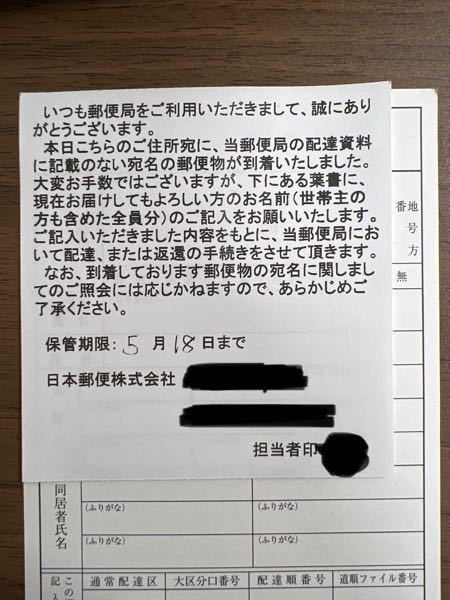 いつも郵便局をご利用いただきまして、誠にあり
がとうございます。
本日こちらのご住所宛に、当郵便局の配達資料
に記載のない宛名の郵便物が到着いたしました。
大変お手数ではございますが、下にある葉書に、
現在お届けしてもよろしい方のお名前(世帯主の
方も含めた全員分)のご記入をお願いいたします。
ご記入いただきました内容をもとに、当郵便局にお
いて配達、または返還の手続きをさせて頂きます。
なお、到着しております郵便物の宛名に関しまし
てのご照会には応じかねますので、あらかじめご
了承ください。
保管期限: 5 月 18 日まで
日本郵便株式会社
担当者印
番地
号
方
無
同居者氏名
(ふりがな) (ふりがな)
(ふりがな) (ふりがな)
この
記入
通常配達区 大区分口番号 配達順番号 道順ファイル番号